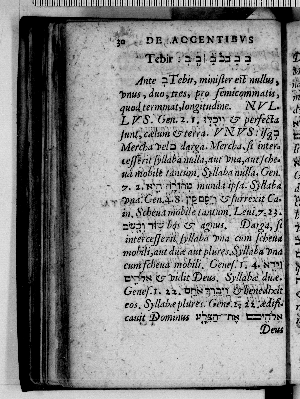 30 DE ACCENTIBVS
Tebir:
Ante Tebir, minister est nullus,
vnus, duo, tres, pro semicommatis,
quod terminat, longitudine. NVL-
LVS. Gen. 2. 1. & perfecta
sunt, cælum & terra. VNVS: isq;
Mercha vel darga. Mercha, si inter-
cesserit syllaba nulla, aut vna, aut sche-
ua mobile tantum. Syllaba nulla, Gen.
7. 2. munda ipsa. Syllaba
vna. Gen. 4. 8. & surrexit Ca-
in. Scheua mobile tantum. Leui. 7. 23.
bos & agnus. Darga, si
intercesserit syllaba vna cum scheua
mobili, aut duæ aut plures. Syllaba vna
cum scheua mobili. Genes. 1. 4.
& vidit Deus. Syllabæ duæ.
Genes. 1. 22. & benedixit
eos. Syllabæ plures. Genes. 2. 22. ædifi-
cauit Dominus
Deus